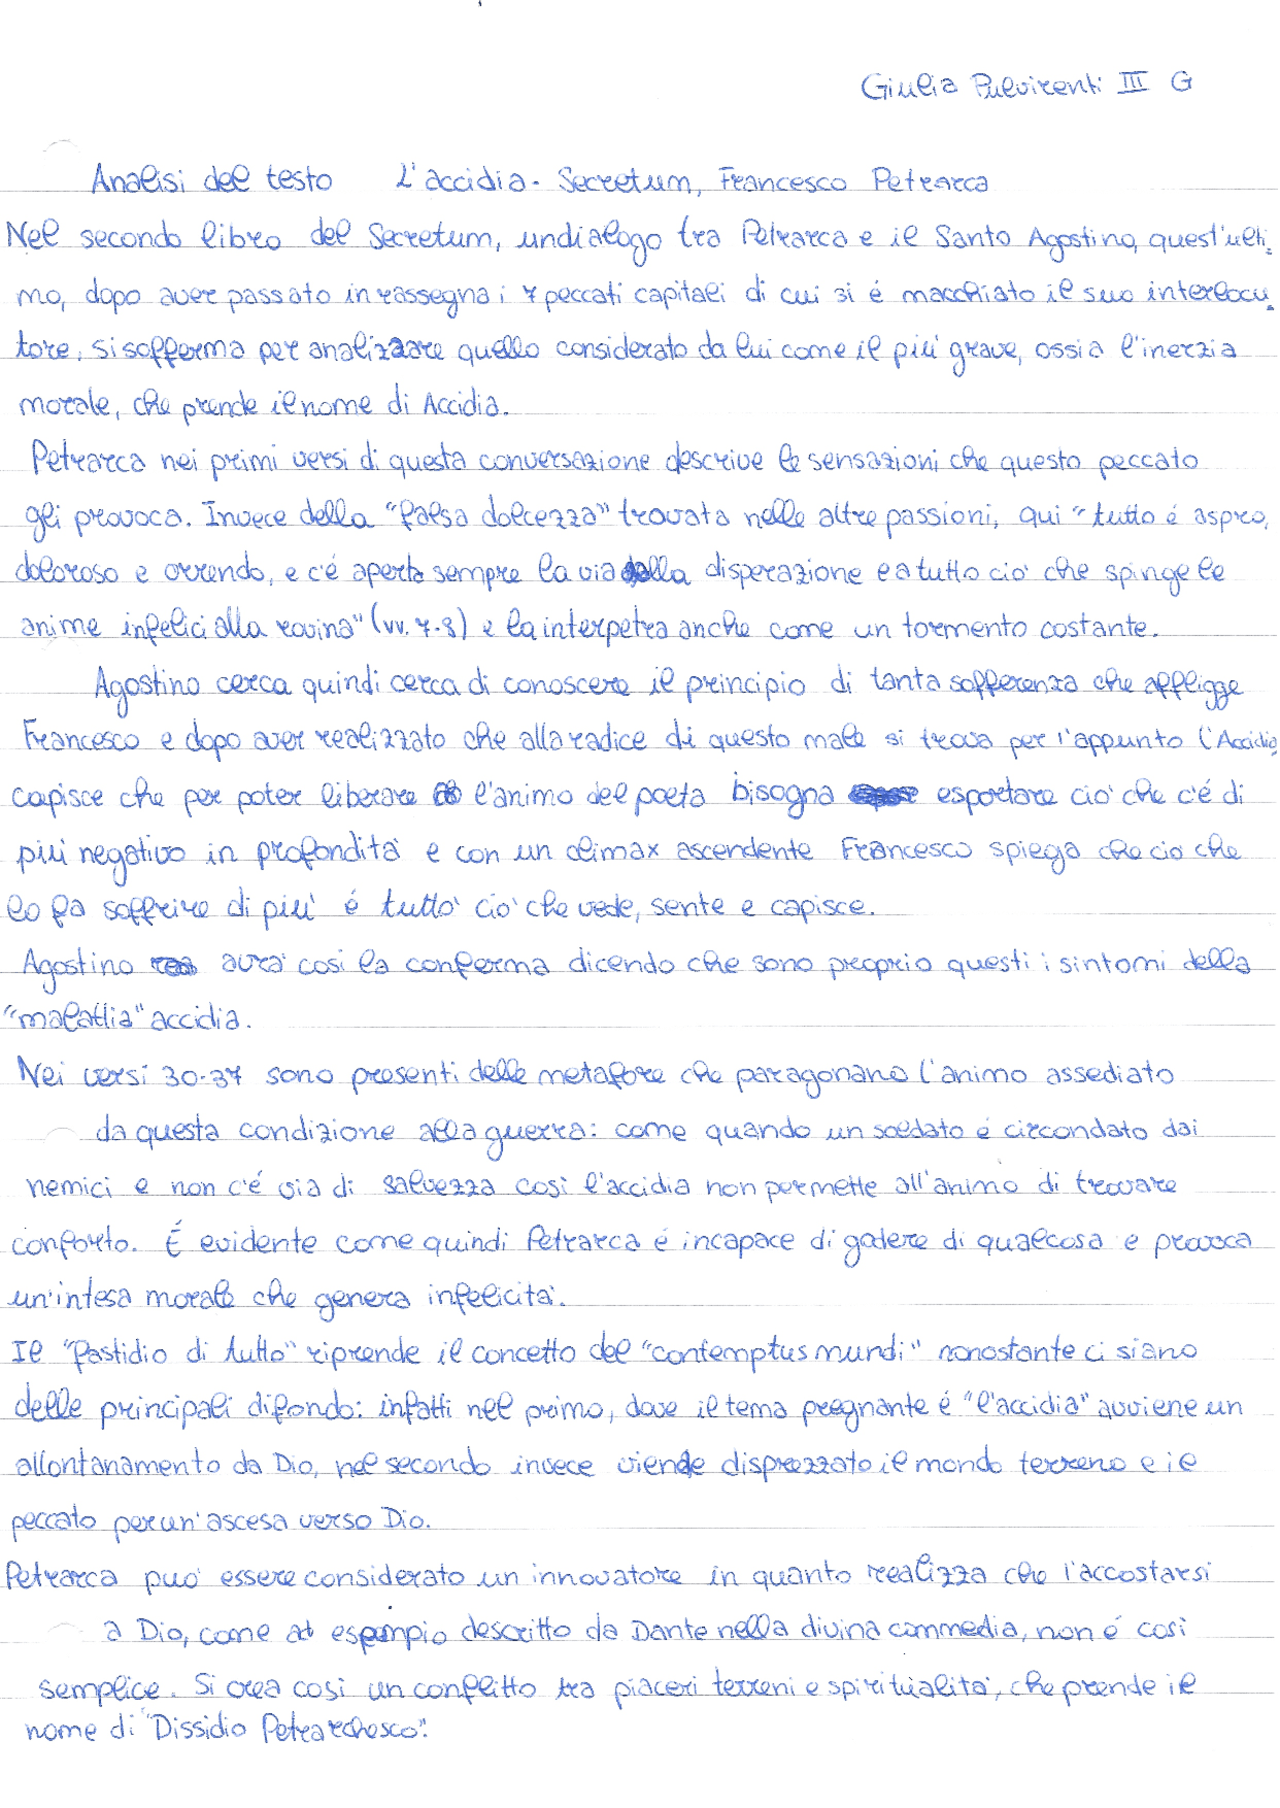 Giulia Pulvirenti III G
Analisi del testo L'accidia - Secretum, Francesco Petrarca
Nel secondo libro del Secretum, un dialogo tra Petrarca e il Santo Agostino, quest'ulti-
mo, dopo aver passato in rassegna i 7 peccati capitali di cui si é macchiato il suo interlocu-
tore, si sofferma per analizzare quello considerato da lui come il più grave, ossia l'inerzia
morale, che prende il nome di Accidia.
Petrarca nei primi versi di questa conversazione descrive le sensazioni che questo peccato
gli provoca. Invece della "falsa dolcezza" trovata nelle altre passioni, qui "tutto é aspro,
doloroso e orrendo, e c'é aperta sempre la via della disperazione e a tutto ciò che spinge le
anime infelici alla rovina" (vv. 7-8) e la interpetra anche come un tormento costante.
Agostino cerca quindi cerca di conoscere il principio di tanta sofferenza che affligge
Francesco e dopo aver realizzato che alla radice di questo male si trova per l'appunto l'Accidia
capisce che per poter liberare l'animo del poeta bisogna esportare ciò che c'é di
più negativo in profondità e con un climax ascendente Francesco spiega che ciò che
lo fa soffrire di più é tutto ciò che vede, sente e capisce.
Agostino avrà così la conferma dicendo che sono proprio questi i sintomi della
"malattia" accidia.
Nei versi 30-37 sono presenti delle metafore che paragonano l'animo assediato
da questa condizione alla guerra: come quando un soldato é circondato dai
nemici e non c'é via di salvezza così l'accidia non permette all'animo di trovare
conforto. É evidente come quindi Petrarca é incapace di godere di qualcosa e provoca
un'intesa morale che genera infelicità.
Il "fastidio di tutto" riprende il concetto del "contemptus mundi" nonostante ci siano
delle principali di fondo: infatti nel primo, dove il tema pregnante é "l'accidia" avviene un
allontanamento da Dio, nel secondo invece viene disprezzato il mondo terreno e il
peccato per un'ascesa verso Dio.
Petrarca può essere considerato un innovatore in quanto realizza che l'accostarsi
a Dio, come ad esempio descritto da Dante nella divina commedia, non é così
semplice. Si crea così un conflitto tra piaceri terreni e spiritualità, che prende il
nome di "Dissidio Petrarchesco".